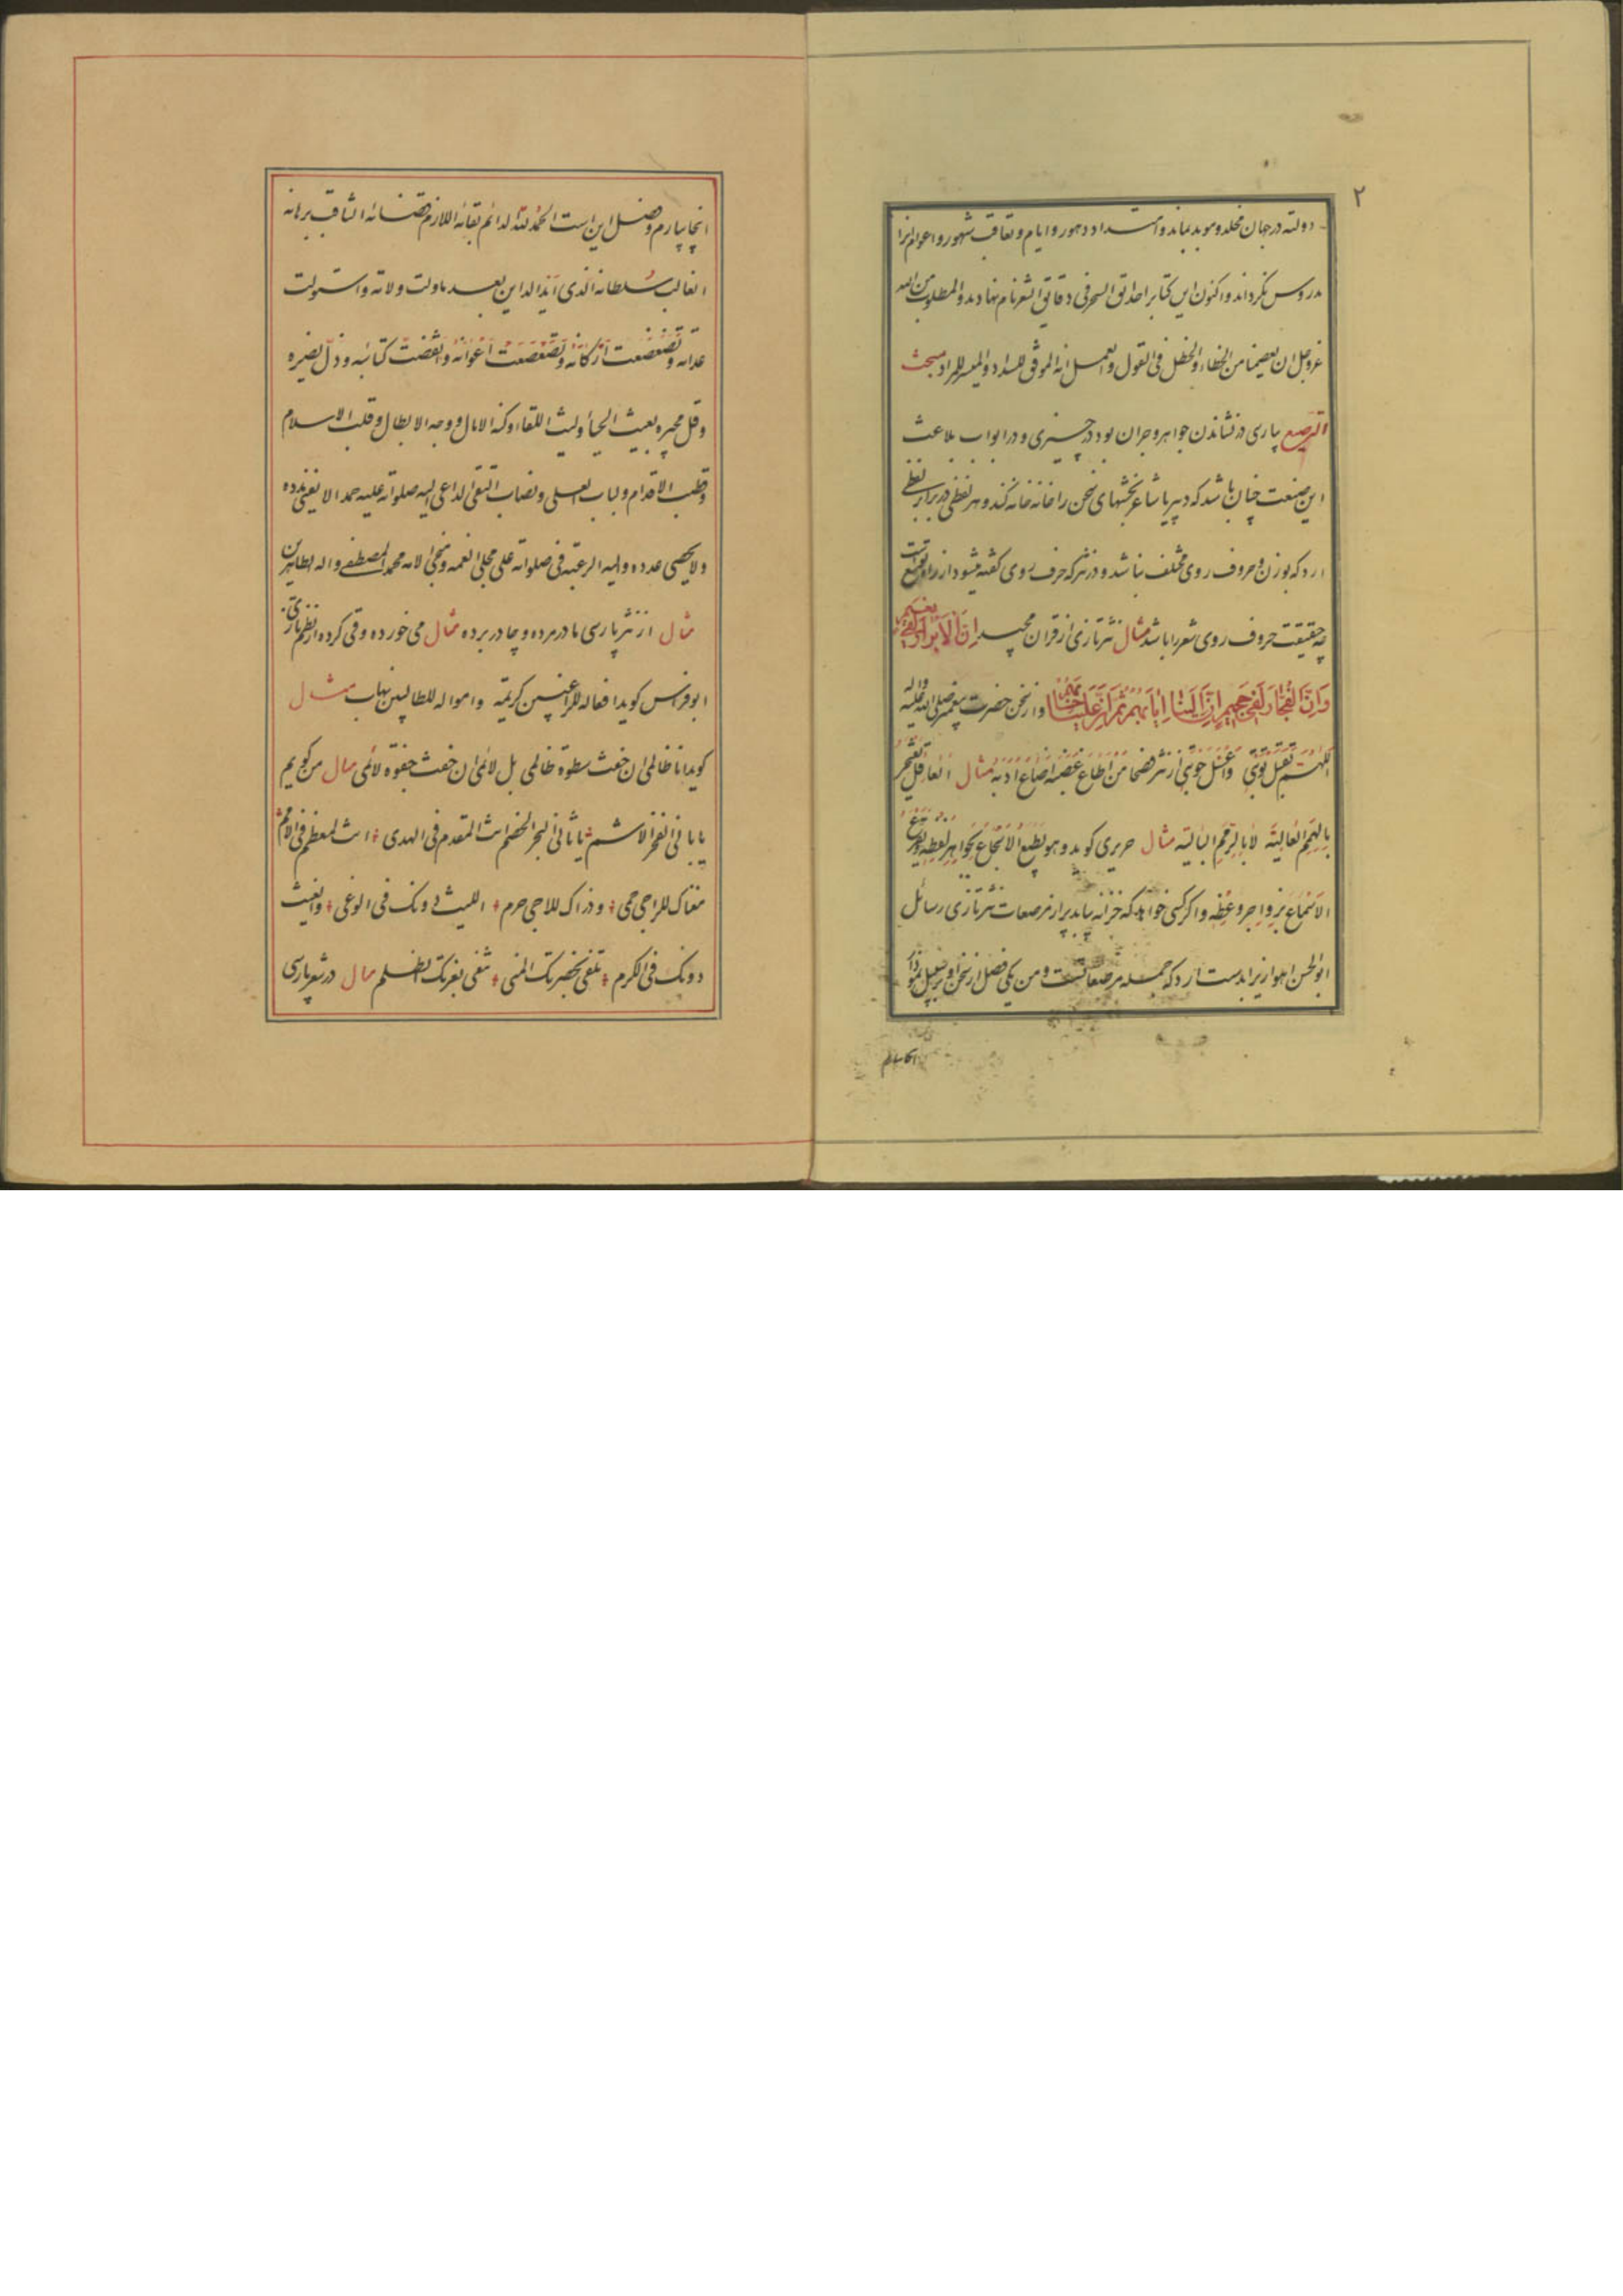 ۲
دولته در جهان مخلد و موید بماند و امتداد دهور و ایام و تعاقب شهور و اعوام انرا
مدروس نکرداند و اکنون این کتابرا حدایق السحر فی دقایق الشعر نام نهادمد و المطلوب من الله
عز و جل ان یعصمنا من الخطاء و الخطل فی القول و العمل انه الموفق للسداد و المیسر للمراد مبحث
الترصیع پارسی در نشاندن جواهر و جز ان بود در چیزی و در ابواب بلاغت
این صنعت چنان باشد که دبیر یا شاعر بخشهای سخن را خانه خانه کند و هر لفظی در برابر لفظی
ارد که بوزن و حروف روی مختلف نباشد و در نثر که حرف روی کفته میشود از راه توسع است
چه حقیقت حروف روی شعر را باشد مثال نثر تازی از قران مجید اِنَّ الْاَبْرارَ لَفی نَعیم
وَاِنَّ الْفُجّارَ لَفی جَحیم اِنَّ اِلَیْنا اِیابَهُم ثُمَّ اِنَّ عَلَیْنا حِسابَهُم و از سخن حضرت پیغمبر صلی الله علیه واله
اللهم تقبل توبتی واغسل حوبتی از نثر فصحا من اطاع غضبه اضاع ادبه مثال العاقل یفتخر
بالهمم العالیة لا بالرمم البالیة مثال حریری کوید و هو یطبع الاسجاع بجواهر لفظه و یقرع
الاسماع بزواجر وعظه و اکر کسی خواهد که خزانه یابد پر از مرصعات نثر تازی رسائل
ابو الحسن اهوازیرا بدست ارد که جمله مرصعاتست و من یکی فصل از سخن او بر سبیل نمودار
انجا بیارم و فصل این است الحمد لله الدائم بقائه اللازم قضائه الثاقب برهانه
الغالب سلطانه الذی اید الدین بعد ما ولت ولاته و استولت
عداته و تضعضعت ارکانه و تصعصعت اعوانه و انفضت کتائبه و ذل نصیره
و قل مجیره بغیث الحیا و لیث اللقاء و کنه الامال و وجه الابطال و قلب الاسلام
و قطب الاقدام و لباب العلی و نصاب التقی الداعی الیه صلواته علیه حمدا لا یفنی مدده
و لا یحصی عدده و الیه الرغبة فی صلواته علی مجلی الغمه و منجی الامه محمد المصطفے و اله الطاهرین
مثال از نثر پارسی مادر مرده و چادر برده مثال می خورده و قی کرده از نظم تازی
ابو فراس کوید افعاله للراغبین کریمة و امواله للطالبین نهاب مثال
کوید انا ظالمی ان خفت سطوة ظالمی بل لائمی ان خفت جفوة لائمی مثال من کویم
یا بانی الفخر الاشم یا ثانی البحر الخضم انت المقدم فی الهدی انت المعظم فی الامم
مغناک للراجی حمی و ذراک للاجی حرم اللیث دونک فی الوغی و الغیث
دونک فی الکرم تلقی بحضرتک المنی تنفی بغرتک الظلم مثال در شعر پارسی